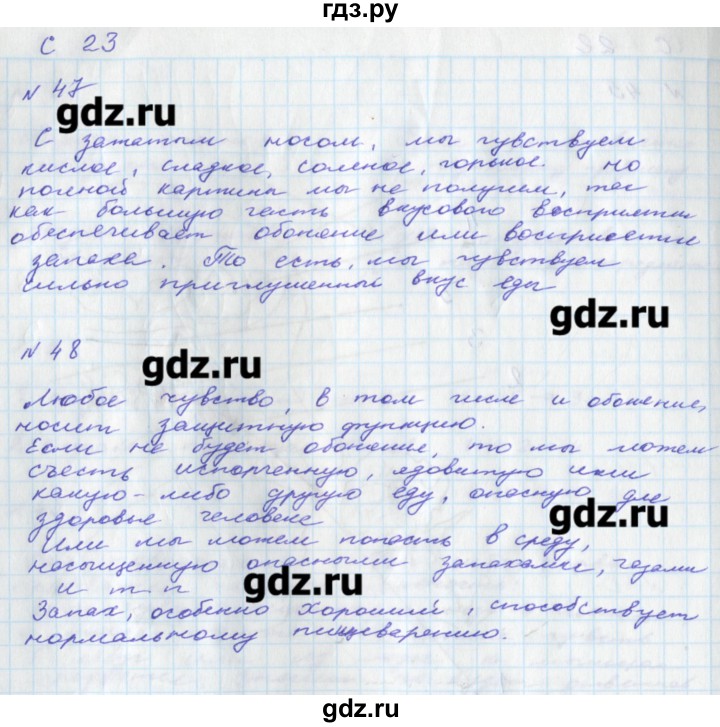 гдз.ру
с 23
N 47
gdz.ru
С зажатым носом, мы чувствуем
кислое, сладкое, соленое, горькое. но
полной картины мы не получим, так
как большую часть вкусового восприятия
обеспечивает обоняние или восприятие
запаха. То есть, мы чувствуем
сильно приглушенный вкус еды
gdz.ru
N 48
gdz.ru
Любое чувство, в том числе и обоняние,
носит защитную функцию.
Если не будет обоняние, то мы можем
съесть испорченную, ядовитую или
какую-либо другую еду, опасную для
здоровье человека
gdz.ru
Или мы можем попасть в среду,
насыщенную опасными запахами, газами
и т п
gdz.ru
Запах, особенно хороший, способствует
нормальному пищеварению.
gdz.ru